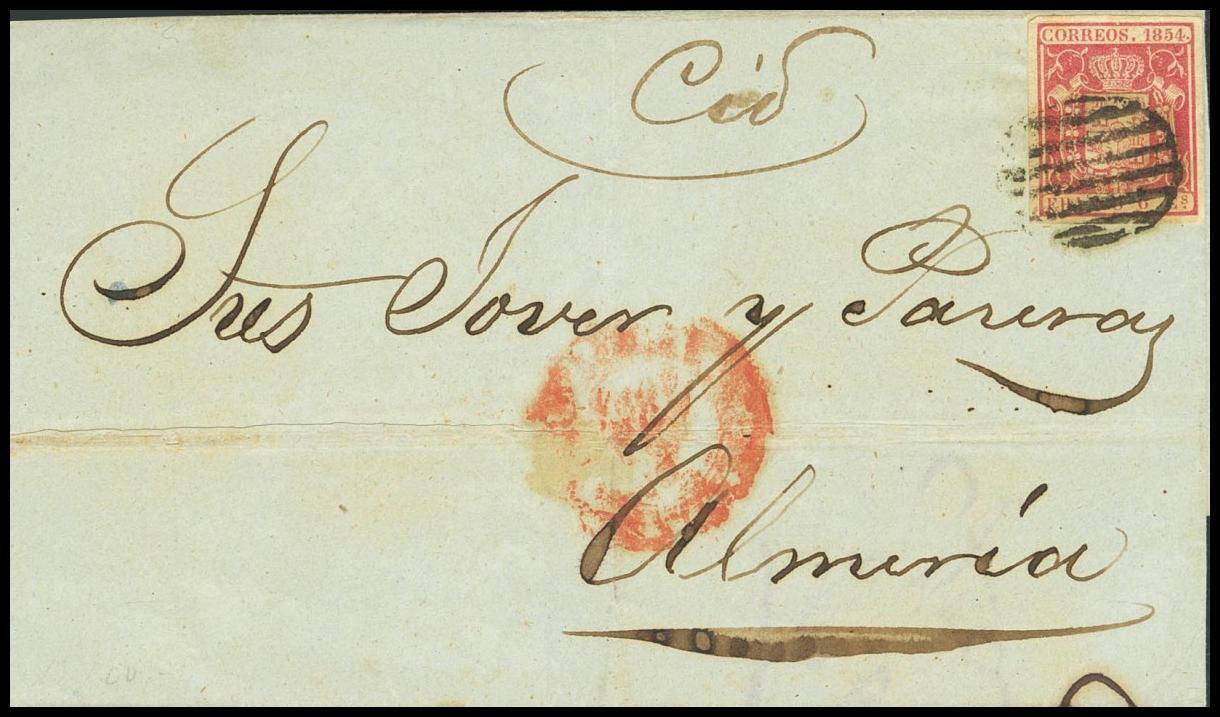 Cid
CORREOS. 1854.
6 Cs
Sres Jover y Parera
Almería